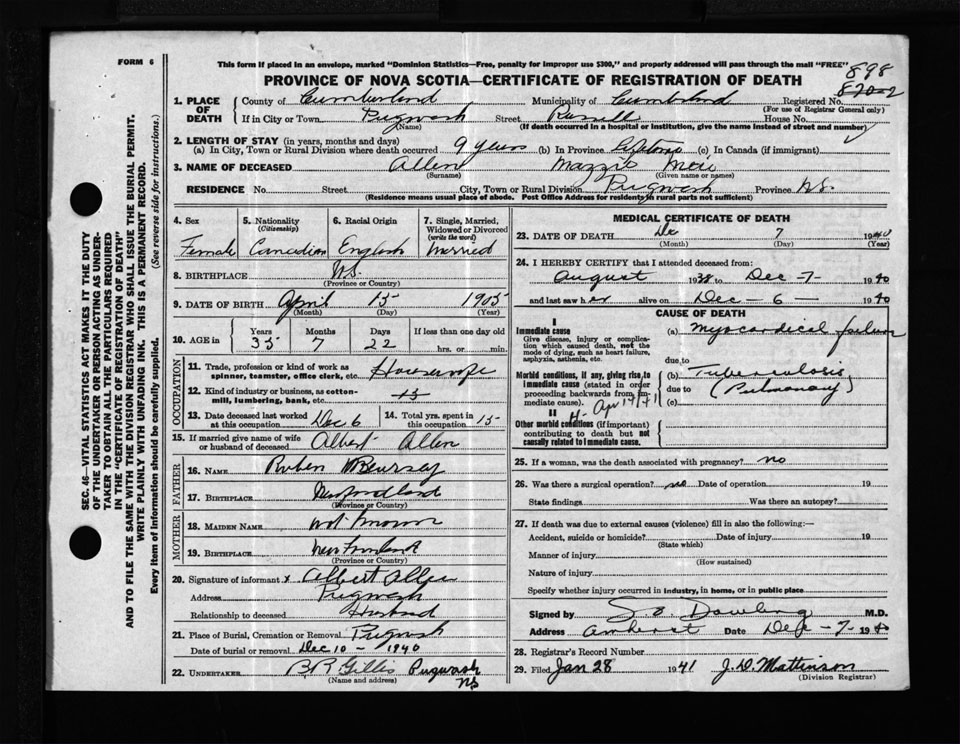 FORM 6
This form if placed in an envelope, marked "Dominion Statistics—Free, penalty for improper use $300," and properly addressed will pass through the mail "FREE"
898
PROVINCE OF NOVA SCOTIA—CERTIFICATE OF REGISTRATION OF DEATH
SEC. 46—VITAL STATISTICS ACT MAKES IT THE DUTY
OF THE UNDERTAKER OR PERSON ACTING AS UNDER-
TAKER TO OBTAIN ALL THE PARTICULARS REQUIRED
IN THE "CERTIFICATE OF REGISTRATION OF DEATH"
AND TO FILE THE SAME WITH THE DIVISION REGISTRAR WHO SHALL ISSUE THE BURIAL PERMIT.
WRITE PLAINLY WITH UNFADING INK. THIS IS A PERMANENT RECORD.
Every item of Information should be carefully supplied. (See reverse side for instructions.)
1. PLACE OF DEATH County of Cumberland Municipality of Cumberland Registered No.
(For use of Registrar General only)
If in City or Town Pugwash Street Russell House No.
(Name) (If death occurred in a hospital or institution, give the name instead of street and number)
2. LENGTH OF STAY (in years, months and days)
(a) In City, Town or Rural Division where death occurred 9 years (b) In Province (c) In Canada (if immigrant)
3. NAME OF DECEASED Allen
(Surname) (Given name or names)
RESIDENCE No. Street City, Town or Rural Division Pugwash Province N.S.
(Residence means usual place of abode. Post Office Address for residents in rural parts not sufficient)
4. Sex Female
5. Nationality (Citizenship) Canadian
6. Racial Origin English
7. Single, Married, Widowed or Divorced (write the word) Married
8. BIRTHPLACE N.S.
(Province or Country)
9. DATE OF BIRTH April 15 1905
(Month) (Day) (Year)
10. AGE in Years 35 Months 7 Days 22 If less than one day old hrs. or min.
OCCUPATION
11. Trade, profession or kind of work as spinner, teamster, office clerk, etc. Housewife
12. Kind of industry or business, as cotton-mill, lumbering, bank, etc. 15
13. Date deceased last worked at this occupation Dec 6
14. Total yrs. spent in this occupation 15
15. If married give name of wife or husband of deceased Albert Allen
FATHER
16. NAME Ruben
17. BIRTHPLACE Newfoundland
(Province or Country)
MOTHER
18. MAIDEN NAME not known
19. BIRTHPLACE Newfoundland
(Province or Country)
20. Signature of informant x Albert Allen
Address Pugwash
Relationship to deceased Husband
21. Place of Burial, Cremation or Removal Pugwash
Date of burial or removal Dec 10 - 1940
22. UNDERTAKER B.B. Gillis Pugwash NS
(Name and address)
MEDICAL CERTIFICATE OF DEATH
23. DATE OF DEATH Dec 7 1940
(Month) (Day) (Year)
24. I HEREBY CERTIFY that I attended deceased from:
August 1938 to Dec - 7 - 1940
and last saw her alive on Dec - 6 - 1940
CAUSE OF DEATH
I
Immediate cause
Give disease, injury or complication which caused death, not the mode of dying, such as heart failure, asphyxia, asthenia, etc.
(a) myocardical failure
due to
Morbid conditions, if any, giving rise to immediate cause (stated in order proceeding backwards from immediate cause).
(b) Tuberculosis
due to (Pulmonary)
(c)
II
Other morbid conditions (if important) contributing to death but not causally related to immediate cause.
25. If a woman, was the death associated with pregnancy? no
26. Was there a surgical operation? no Date of operation 19
State findings Was there an autopsy?
27. If death was due to external causes (violence) fill in also the following:—
Accident, suicide or homicide? Date of injury 19
(State which)
Manner of injury
(How sustained)
Nature of injury
Specify whether injury occurred in industry, in home, or in public place
Signed by S. E. Dowling M.D.
Address Amherst Date Dec - 7 - 1940
28. Registrar's Record Number
29. Filed Jan 28 1941 J. D. Mattinson
(Division Registrar)